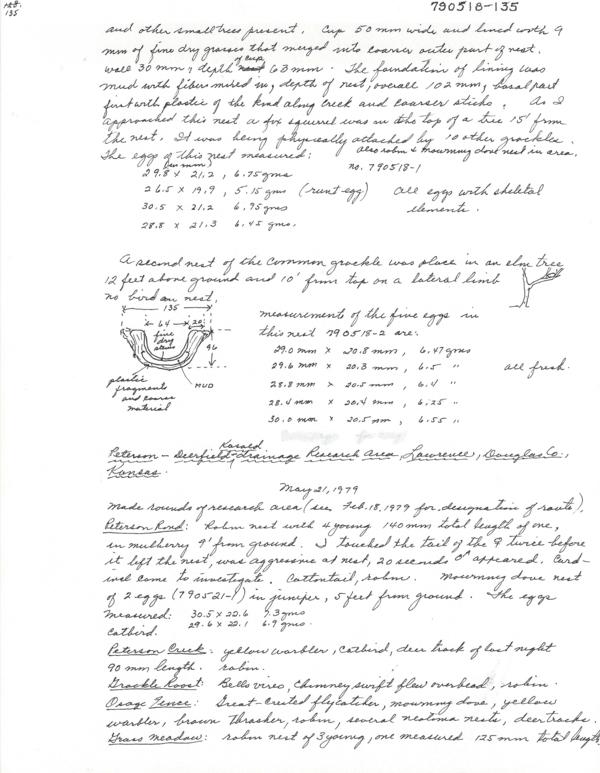 pg.
135
790518-135
and other small trees present. Cup 50 mm wide and lined with 9
mm of fine dry grasses that merged into coarser outer part of nest.
wall 30 mm, depth of cup 63 mm. The foundation of lining was
mud with fibers mixed in, depth of nest, overall 102 mm, basal part
first with plastic of the kind along creek and coarser sticks. As I
approached this nest a fox squirrel was in the top of a tree 15' from
the nest. It was being physically attacked by 10 other grackles.
also robin & mourning dove nest in area.
The eggs of this nest measured: no. 790518-1
(in mm)
29.8 x 21.2, 6.75 gms
26.5 x 19.9, 5.15 gms (runt egg) all eggs with skeletal
30.5 x 21.2 6.95 gms elements.
28.8 x 21.3 6.45 gms.
A second nest of the common grackle was place in an elm tree
12 feet above ground and 10' from top on a lateral limb
no bird on nest.
135
64 20
fine
dry
stems
96
plastic
fragments
and coarse
material
MUD
measurements of the five eggs in
this nest 790518-2 are:
29.0 mm x 20.8 mm, 6.47 gms
29.6 mm x 20.3 mm, 6.5 " all fresh.
28.8 mm x 20.5 mm, 6.4 "
28.4 mm x 20.4 mm, 6.25 "
30.0 mm x 20.5 mm, 6.55 "
Kasold
Peterson - Deerfield - drainage Research Area, Lawrence, Douglas Co.,
Kansas.
May 21, 1979
Made rounds of research area (see Feb. 18, 1979 for designation of route).
Peterson Road: Robin nest with 4 young 140 mm total length of one,
in mulberry 9' from ground. I touched the tail of the ♀ twice before
it left the nest, was aggressive at nest, 20 seconds ♂ appeared. Card-
inal came to investigate. Cottontail, robin. Mourning dove nest
of 2 eggs (790521-1) in juniper, 5 feet from ground. The eggs
measured: 30.5 x 22.6 7.3 gms
29.6 x 22.1 6.9 gms.
Catbird.
Peterson Creek: yellow warbler, catbird, deer track of last night
90 mm length. robin.
Grackle Roost: Bells vireo, Chimney swift flew overhead, robin.
Osage Fence: Great-crested flycatcher, mourning dove, yellow
warbler, brown thrasher, robin, several neotoma nests, deer tracks.
Grass meadow: robin nest of 3 young, one measured 125 mm total length